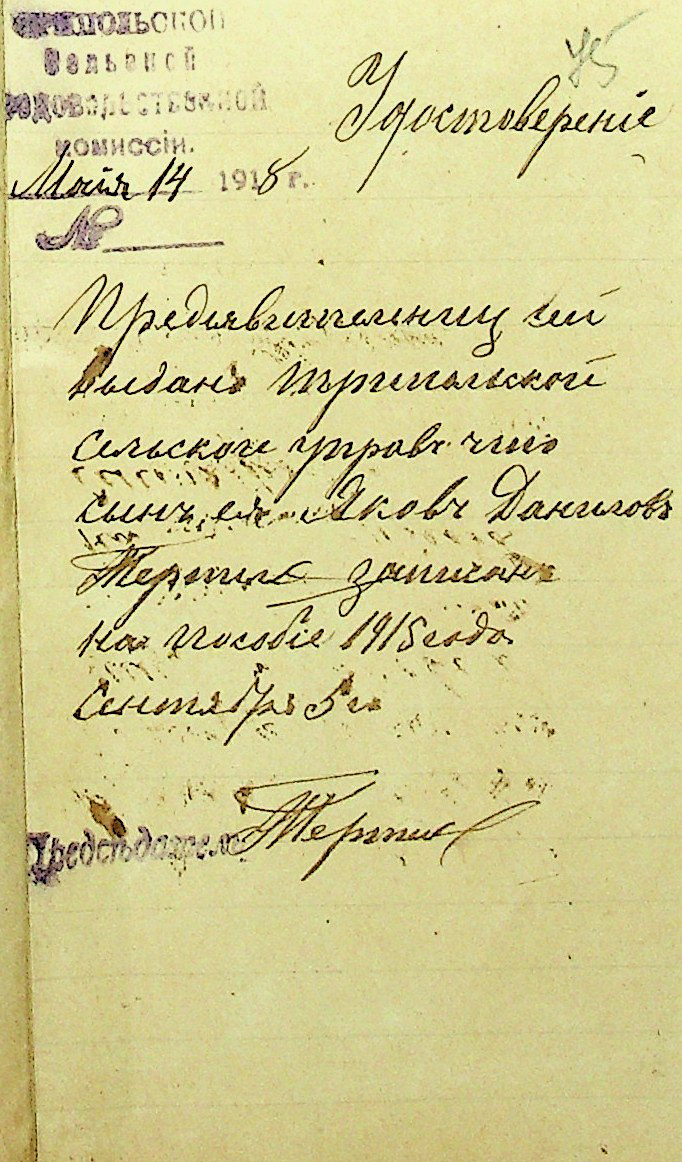 Трипольской
сельской
продовольственной
комиссіи.
Майя 14 1918 г.
№
75
Удостоверение
Предьявительниц сей
выдано Трипольской
сельской управ что
сынъ ея Яковъ Данилов
Терпил записан
на пособіе 1915 года
Сентября 5 го
Предсѣдатель Терпил